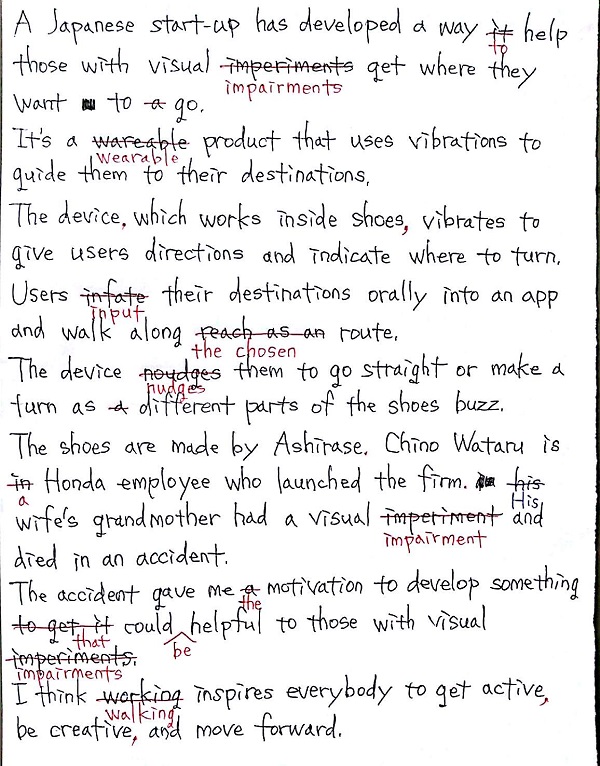 A Japanese start-up has developed a way it help
to
those with visual imperiments get where they
impairments
want to a go.
It's a wareable product that uses vibrations to
wearable
guide them to their destinations.
The device, which works inside shoes, vibrates to
give users directions and indicate where to turn.
Users infate their destinations orally into an app
input
and walk along reach as an route.
the chosen
The device noudges them to go straight or make a
nudges
turn as a different parts of the shoes buzz.
The shoes are made by Ashirase. Chino Wataru is
in Honda employee who launched the firm. his
a His
wife's grandmother had a visual imperiment and
impairment
died in an accident.
The accident gave me a motivation to develop something
the
to get it could helpful to those with visual
that be
imperiments.
impairments
I think working inspires everybody to get active,
walking
be creative, and move forward.